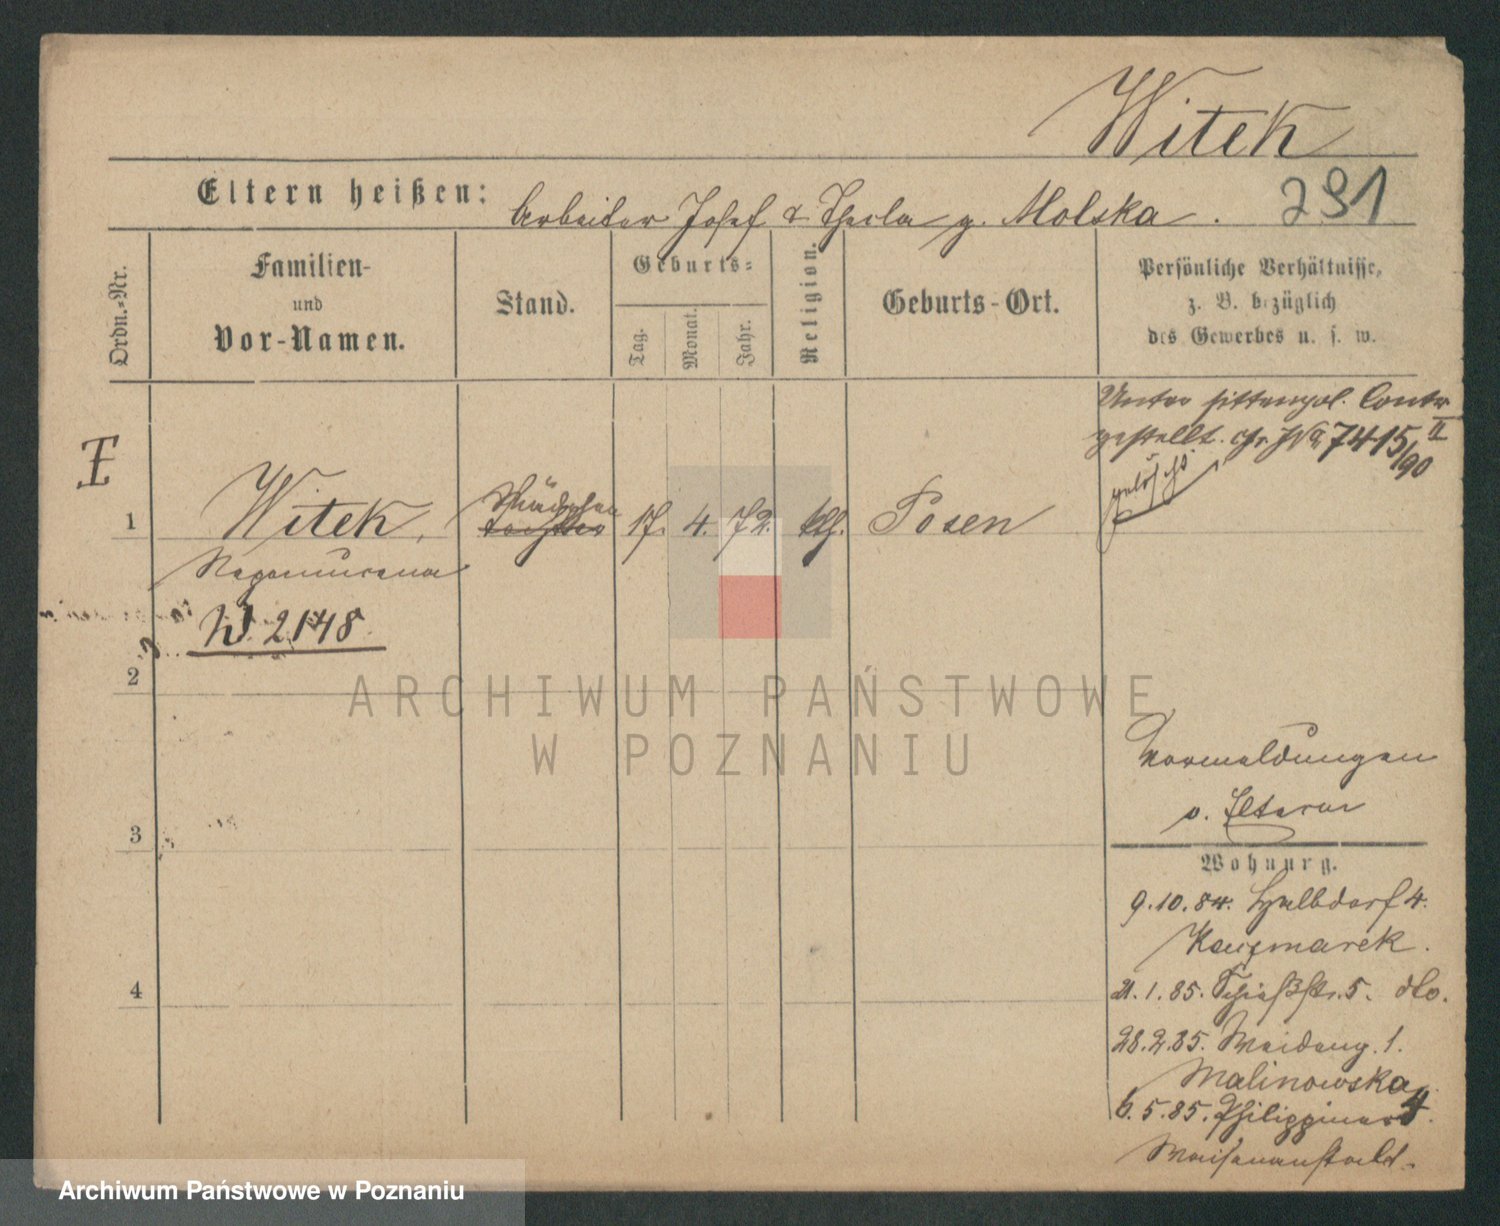 Witek
291
Eltern heißen: Arbeiter Josef & Thecla g. Molska.
Ordn.-Nr.
Familien-
und
Vor-Namen.
Stand.
Geburts-
Tag.
Monat.
Jahr.
Religion.
Geburts-Ort.
Persönliche Verhältnisse,
z. B. bezüglich
des Gewerbes u. s. w.
Unter sittenpol. Contr
gestellt. cfr. No 7415/90 II
gelöscht
I
1
Witek, Mädchen Tochter 17. 4. 72. kth. Posen
Nepomucena
W 2148
2
3
4
Vormeldungen
s. Eltern
Wohnung.
9.10.84. Halbdorf 4.
Kaczmarek.
21.1.85. Schießstr. 5. dto.
28.2.85. Waideng. 1.
Malinowska
6.5.85. Philippinen 4.
Waisenanstalt.
ARCHIWUM PAŃSTWOWE
W POZNANIU
Archiwum Państwowe w Poznaniu